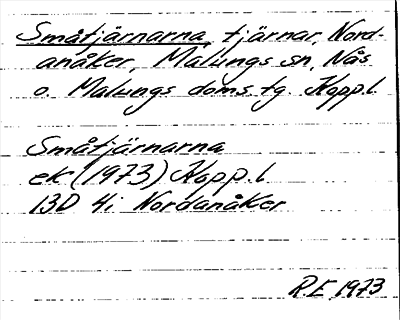 Småtjärnarna, tjärnar, Nord-
anåker, Malungs sn, Nås
o. Malungs doms.tg Kopp.l.
Småtjärnarna
ek (1973) Kopp.l.
13D 4i Nordanåker
R.E 1973